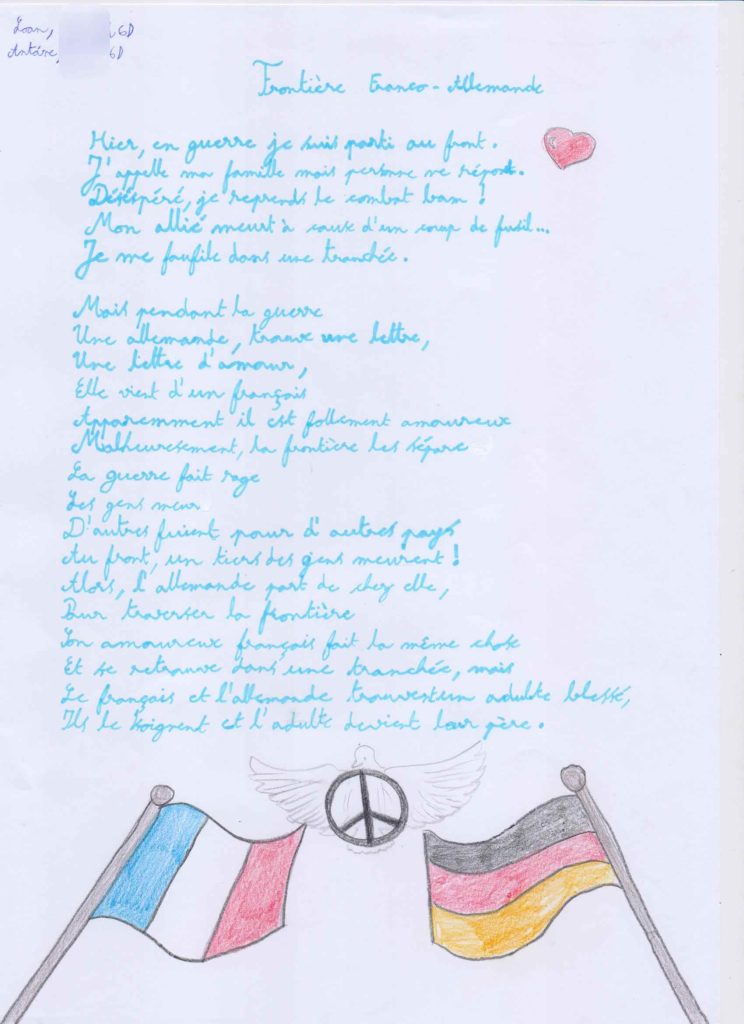 Loan, 6D
Antoine, 6D
Frontière Franco-Allemande
Hier, en guerre je suis parti au front.
J'appelle ma famille mais personne ne répont.
Déséspéré, je reprends le combat bam !
Mon allié meurt à cause d'un coup de fusil...
Je me faufile dans une tranchée.
Mais pendant la guerre
Une allemande, trouve une lettre,
Une lettre d'amour,
Elle vient d'un français
Apparemment il est follement amoureux
Malheuresement, la frontière les sépare
La guerre fait rage
Les gens meur
D'autres fuient pour d'autres pays
Au front, un tiers des gens meurent !
Alors, l'allemande part de chez elle,
Pour traverser la frontière
Son amoureux français fait la même chose
Et se retrouve dans une tranchée, mais
Le français et l'allemande trouvent un adulte blessé,
Ils le soignent et l'adulte devient leur père.